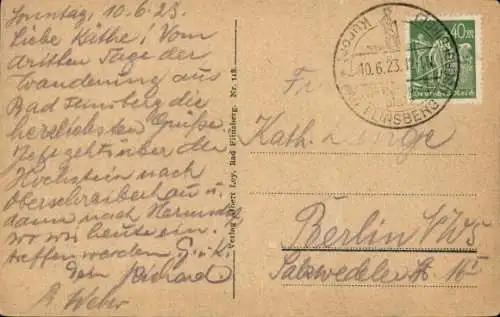 Sonntag, 10.6.23.
Liebe Käthe! Vom
dritten Tage der
Wanderung aus
Bad Flinsberg die
herzlichsten Grüße.
Jetzt geht's über den
Hochstein nach
Oberschreiberhau u.
dann nach
wo wir heute ein-
treffen werden. G. u. K.
Dein
R. Weber
Verlag Albert Loy, Bad Flinsberg. Nr. 118.
10.6.23.
FLINSBERG
40
Deutsches Reich
Fr
Kath.
Berlin NW5
Salzwedeler St. 16